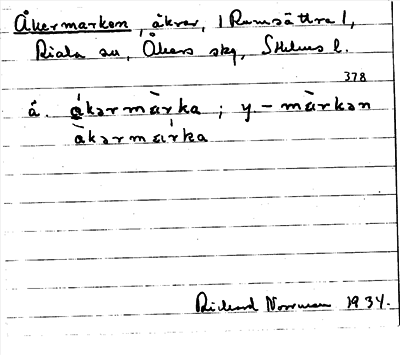 Åkermarken, åkrar, | Rumsättra |,
Riala sn, Åkers skg, Sthlms l.
378
å. ákərmàrka ; y. – màrkən
àkərmárka
Rickard Norrman 1934.